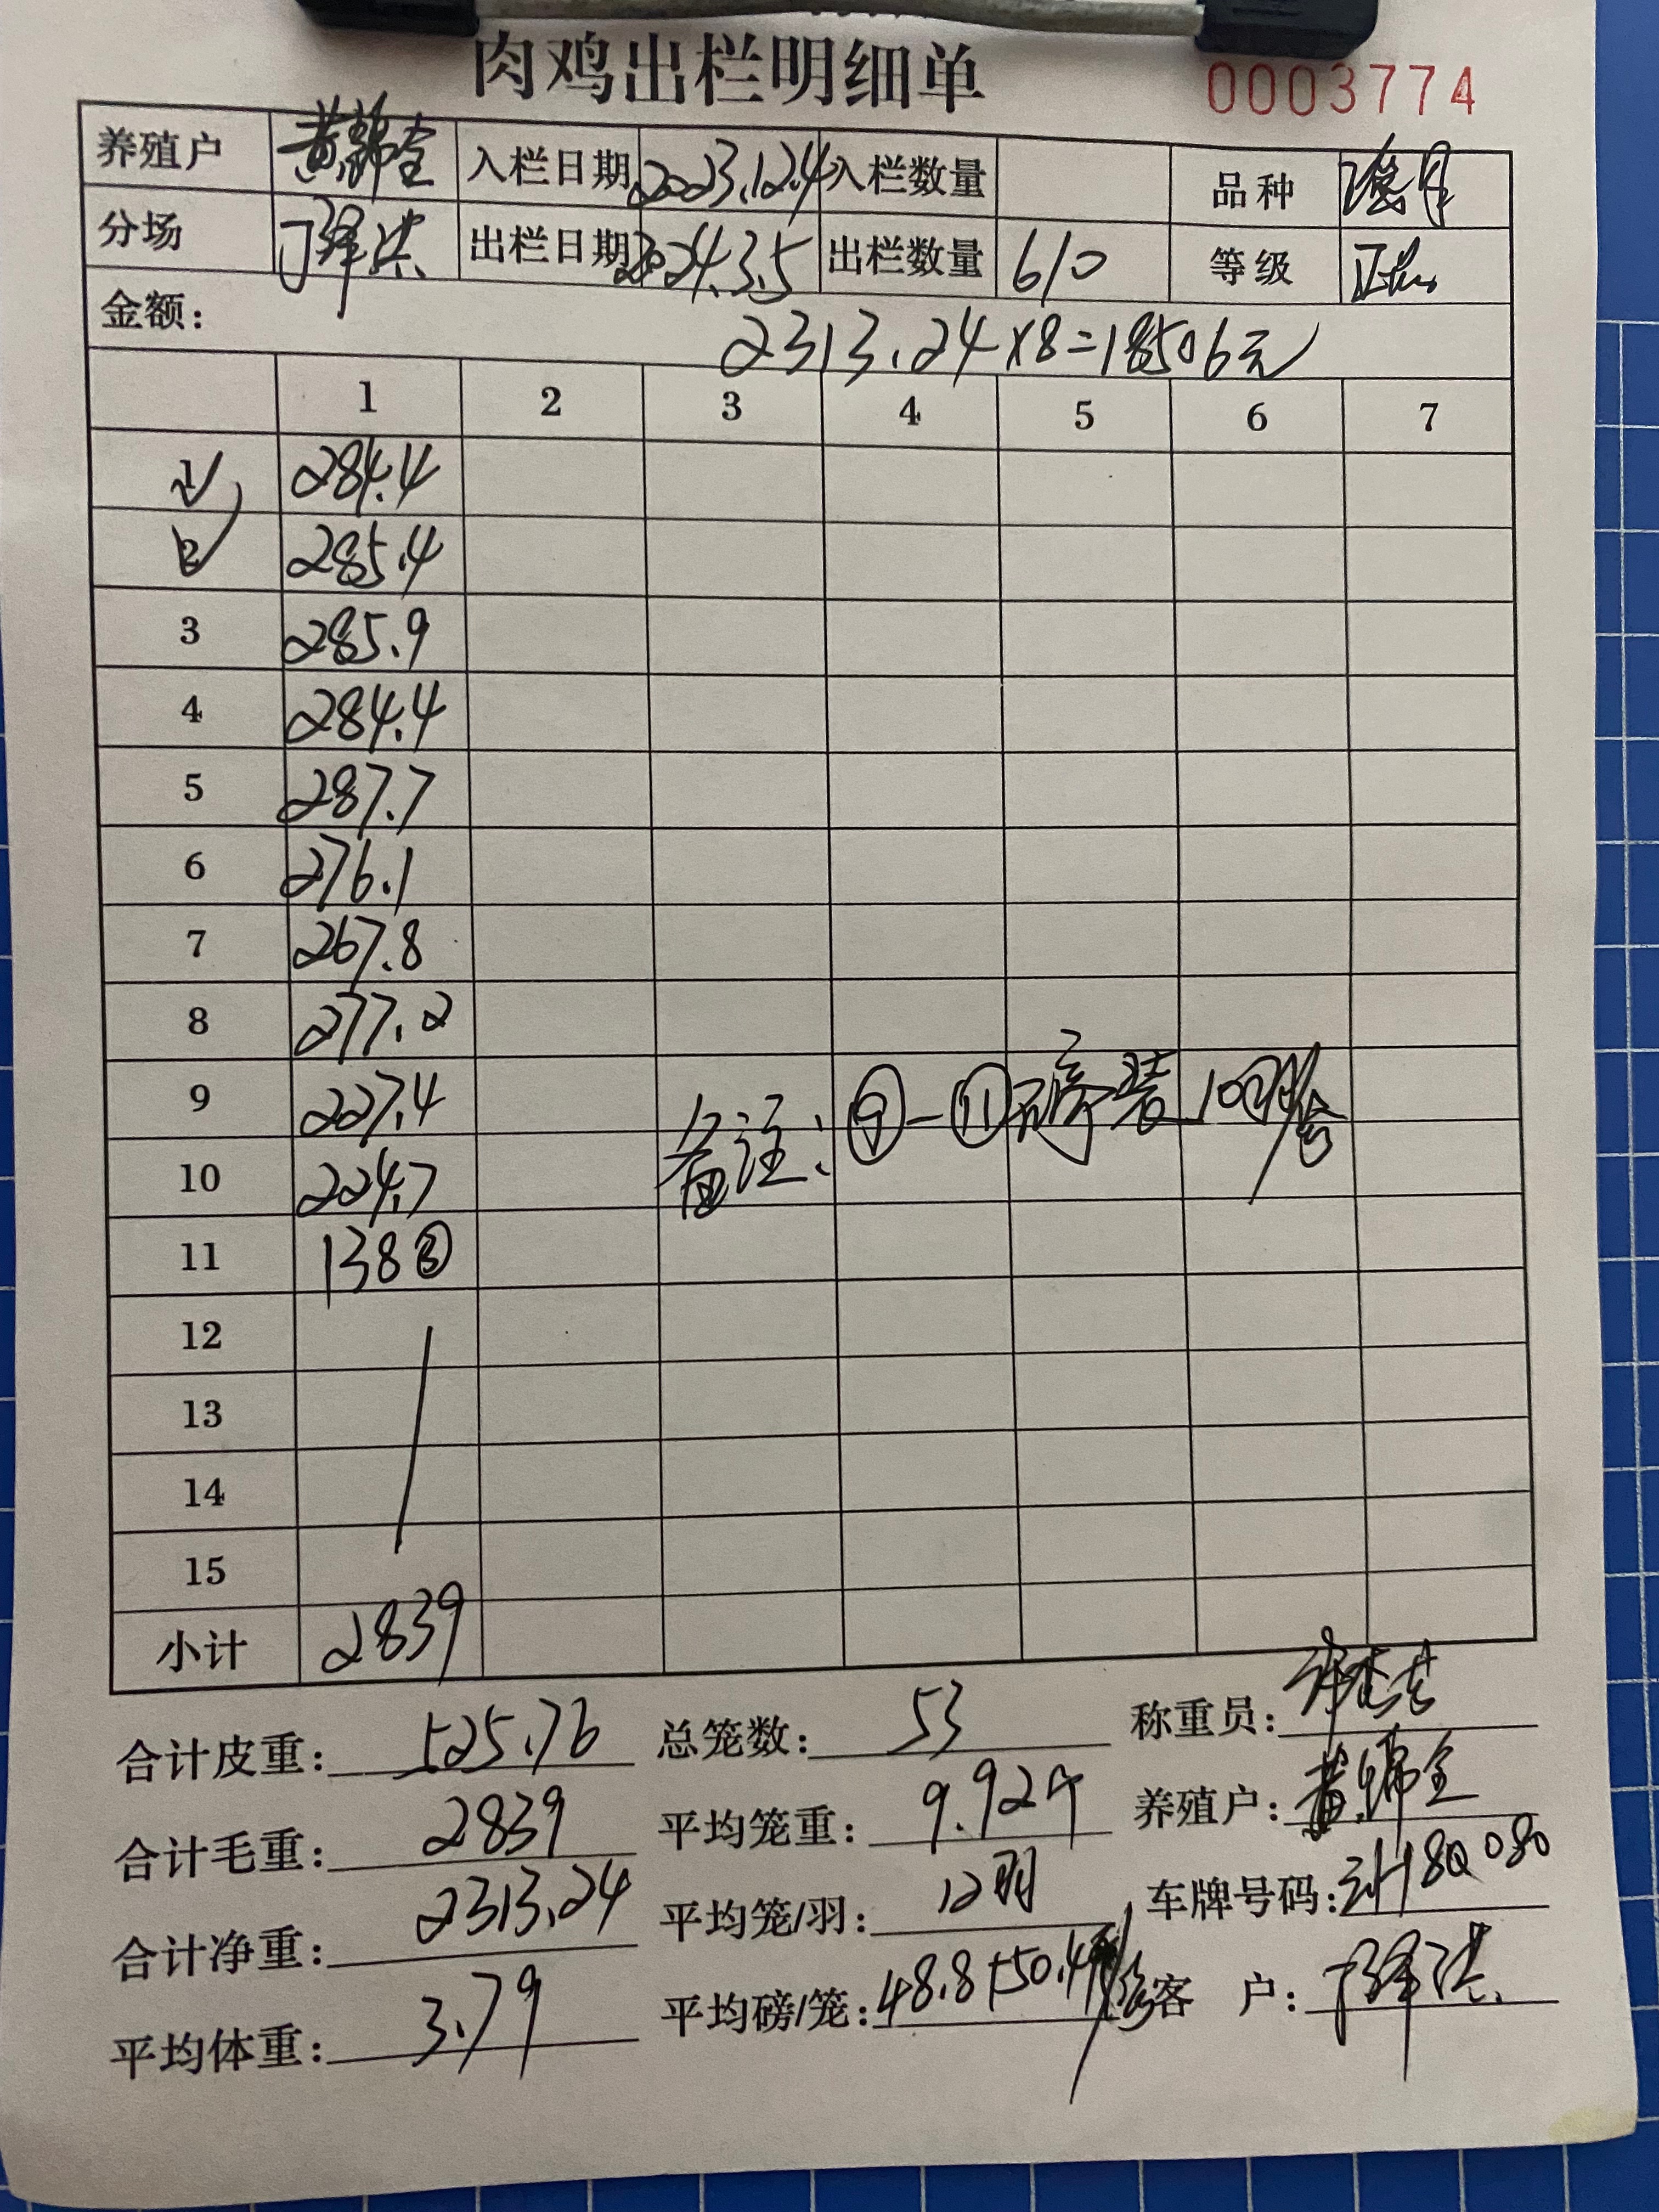 肉鸡出栏明细单 0003774
养殖户 黄锦全 入栏日期 2023.12.4 入栏数量 品种
分场 丁泽洪 出栏日期 2024.3.5 出栏数量 610 等级
金额: 2313.24×8=18506元
1 2 3 4 5 6 7
1 284.4
2 285.4
3 285.9
4 284.4
5 287.7
6 276.1
7 267.8
8 277.2
9 227.4 备注:⑨-⑪磅装10羽/笼
10 224.7
11 138 ③
12
13
14
15
小计 2839
合计皮重: 525.76 总笼数: 53 称重员:
合计毛重: 2839 平均笼重: 9.92斤 养殖户: 黄锦全
合计净重: 2313.24 平均笼/羽: 12羽 车牌号码:
平均体重: 3.79 平均磅/笼: 客 户: 丁泽洪